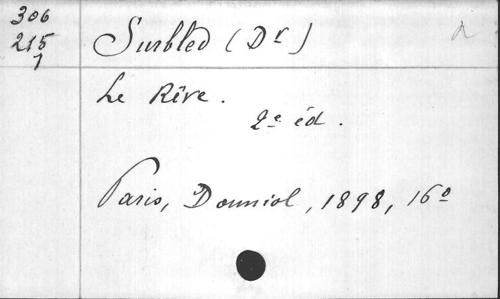 306
215
7
Surbled (Dr)
a
Le Rêve.
2e éd.
Paris, Douniol, 1898, 16o